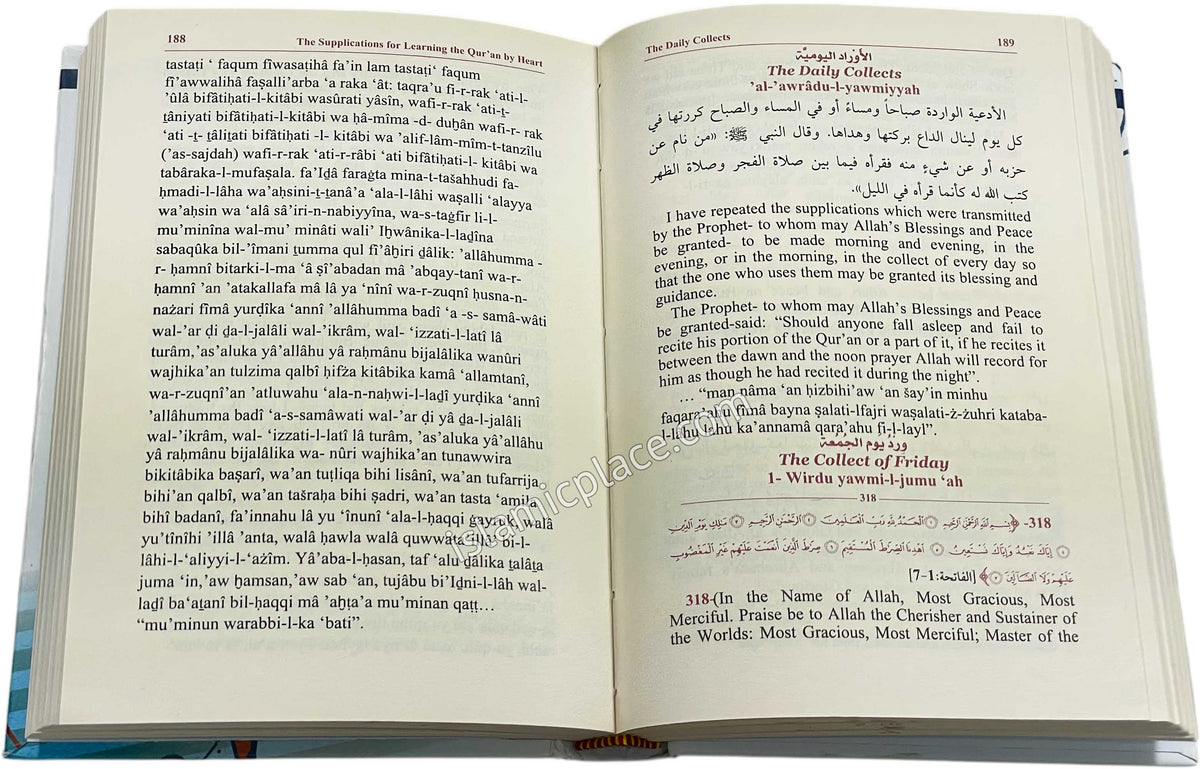 188
The Supplications for Learning the Qur'an by Heart
tastaṭi ‘ faqum fîwasaṭihâ fa'in lam tastaṭi‘ faqum
fî'awwalihâ faṣalli'arba ‘a raka ‘ât: taqra'u fi-r-rak ‘ati-l-
'ûlâ bifâtiḥati-l-kitâbi wasûrati yâsîn, wafi-r-rak ‘ati-ṯ-
ṯâniyati bifâtiḥati-l-kitâbi wa ḥâ-mîma -d- duḫân wafi-r- rak
‘ati -ṯ- ṯâliṯati bifâtiḥati -l- kitâbi wa 'alif-lâm-mîm-t-tanzîlu
('as-sajdah) wafi-r-rak ‘ati-r-râbi ‘ati bifâtiḥati-l- kitâbi wa
tabâraka-l-mufaṣala. fa'iḏâ faraġta mina-t-tašahhudi fa-
ḥmadi-l-lâha wa'aḥsini-ṯ-ṯanâ'a ‘ala-l-lâhi waṣalli ‘alayya
wa'aḥsin wa ‘alâ sâ'iri-n-nabiyyîna, wa-s-taġfir li-l-
mu'minîna wal-mu' minâti wali' Iḫwânika-l-laḏîna
sabaqûka bil-'îmani ṯumma qul fi'âḫiri ḏâlik: 'allâhumma -
r- ḥamnî bitarki-l-ma ‘â ṣî'abadan mâ 'abqay-tanî wa-r-
ḥamnî 'an 'atakallafa mâ lâ ya ‘nînî wa-r-zuqnî ḥusna-n-
naẓari fîmâ yurḍîka ‘annî 'allâhumma badî ‘a -s- samâ-wâti
wal-'ar ḍi ḏa-l-jalâli wal-'ikrâm, wal- ‘izzati-l-latî lâ
turâm,'as'aluka yâ'allâhu yâ raḥmânu bijalâlika wanûri
wajhika'an tulzima qalbî ḥifẓa kitâbika kamâ ‘allamtanî,
wa-r-zuqnî'an 'atluwahu ‘ala-n-naḥwi-l-laḏî yurḍika ‘annî
'allâhumma badî ‘a-s-samâwati wal-'ar ḍi yâ ḏa-l-jalâli
wal-'ikrâm, wal- ‘izzati-l-latî lâ turâm, 'as'aluka yâ'allâhu
yâ raḥmânu bijalâlika wa- nûri wajhika'an tunawwira
bikitâbika baṣarî, wa'an tuṭliqa bihi lisânî, wa'an tufarrija
bihi'an qalbî, wa'an tašraḥa bihi ṣadri, wa'an tasta ‘amila
bihî badanî, fa'innahu lâ yu ‘înunî ‘ala-l-ḥaqqi ġayruka walâ
yu'tînîhi 'illâ 'anta, walâ ḥawla walâ quwwâta 'illâ bi-l-
lâhi-l-‘aliyyi-l-‘aẓîm. Yâ'aba-l-ḥasan, taf ‘alu ḏâlika ṯalâṯa
juma ‘in,'aw ḥamsan,'aw sab ‘an, tujâbu bi'Iḏni-l-lâh wal-
laḏî ba‘aṯanî bil-ḥaqqi mâ 'aḫṭa'a mu'minan qaṭṭ...
“mu'minun warabbi-l-ka ‘bati”.
The Daily Collects
189
الأوراد اليوميَّة
The Daily Collects
'al-'awrâdu-l-yawmiyyah
الأدعية الواردة صباحاً ومساءً أو في المساء والصباح كررتها في
كل يوم لينال الداع بركتها وهداها. وقال النبي ﷺ: «من نام عن
حزبه أو عن شيءٍ منه فقرأه فيما بين صلاة الفجر وصلاة الظهر
كتب الله له كأنما قرأه في الليل».
I have repeated the supplications which were transmitted
by the Prophet- to whom may Allah's Blessings and Peace
be granted- to be made morning and evening, in the
evening, or in the morning, in the collect of every day so
that the one who uses them may be granted its blessing and
guidance.
The Prophet- to whom may Allah's Blessings and Peace
be granted-said: “Should anyone fall asleep and fail to
recite his portion of the Qur'an or a part of it, if he recites it
between the dawn and the noon prayer Allah will record for
him as though he had recited it during the night”.
... “man nâma ‘an ḥizbihi'aw ‘an šay'in minhu
faqara'ahu fîmâ bayna ṣalati-lfajri waṣalati-ẓ-ẓuhri kataba-
l-lâhu lahu ka'annamâ qara'ahu fi-l-layl”.
وردُ يوم الجمعة
The Collect of Friday
1- Wirdu yawmi-l-jumu ‘ah
318
318- ﴿بِسْمِ اللَّهِ الرَّحْمَنِ الرَّحِيمِ ۝١ الْحَمْدُ لِلَّهِ رَبِّ الْعَالَمِينَ ۝٢ الرَّحْمَنِ الرَّحِيمِ ۝٣ مَالِكِ يَوْمِ الدِّينِ
۝٤ إِيَّاكَ نَعْبُدُ وَإِيَّاكَ نَسْتَعِينُ ۝٥ اهْدِنَا الصِّرَاطَ الْمُسْتَقِيمَ ۝٦ صِرَاطَ الَّذِينَ أَنْعَمْتَ عَلَيْهِمْ غَيْرِ الْمَغْضُوبِ
عَلَيْهِمْ وَلَا الضَّالِّينَ ۝٧﴾ [الفاتحة: 1-7]
318-(In the Name of Allah, Most Gracious, Most
Merciful. Praise be to Allah the Cherisher and Sustainer of
the Worlds: Most Gracious, Most Merciful; Master of the
islamicplace.com